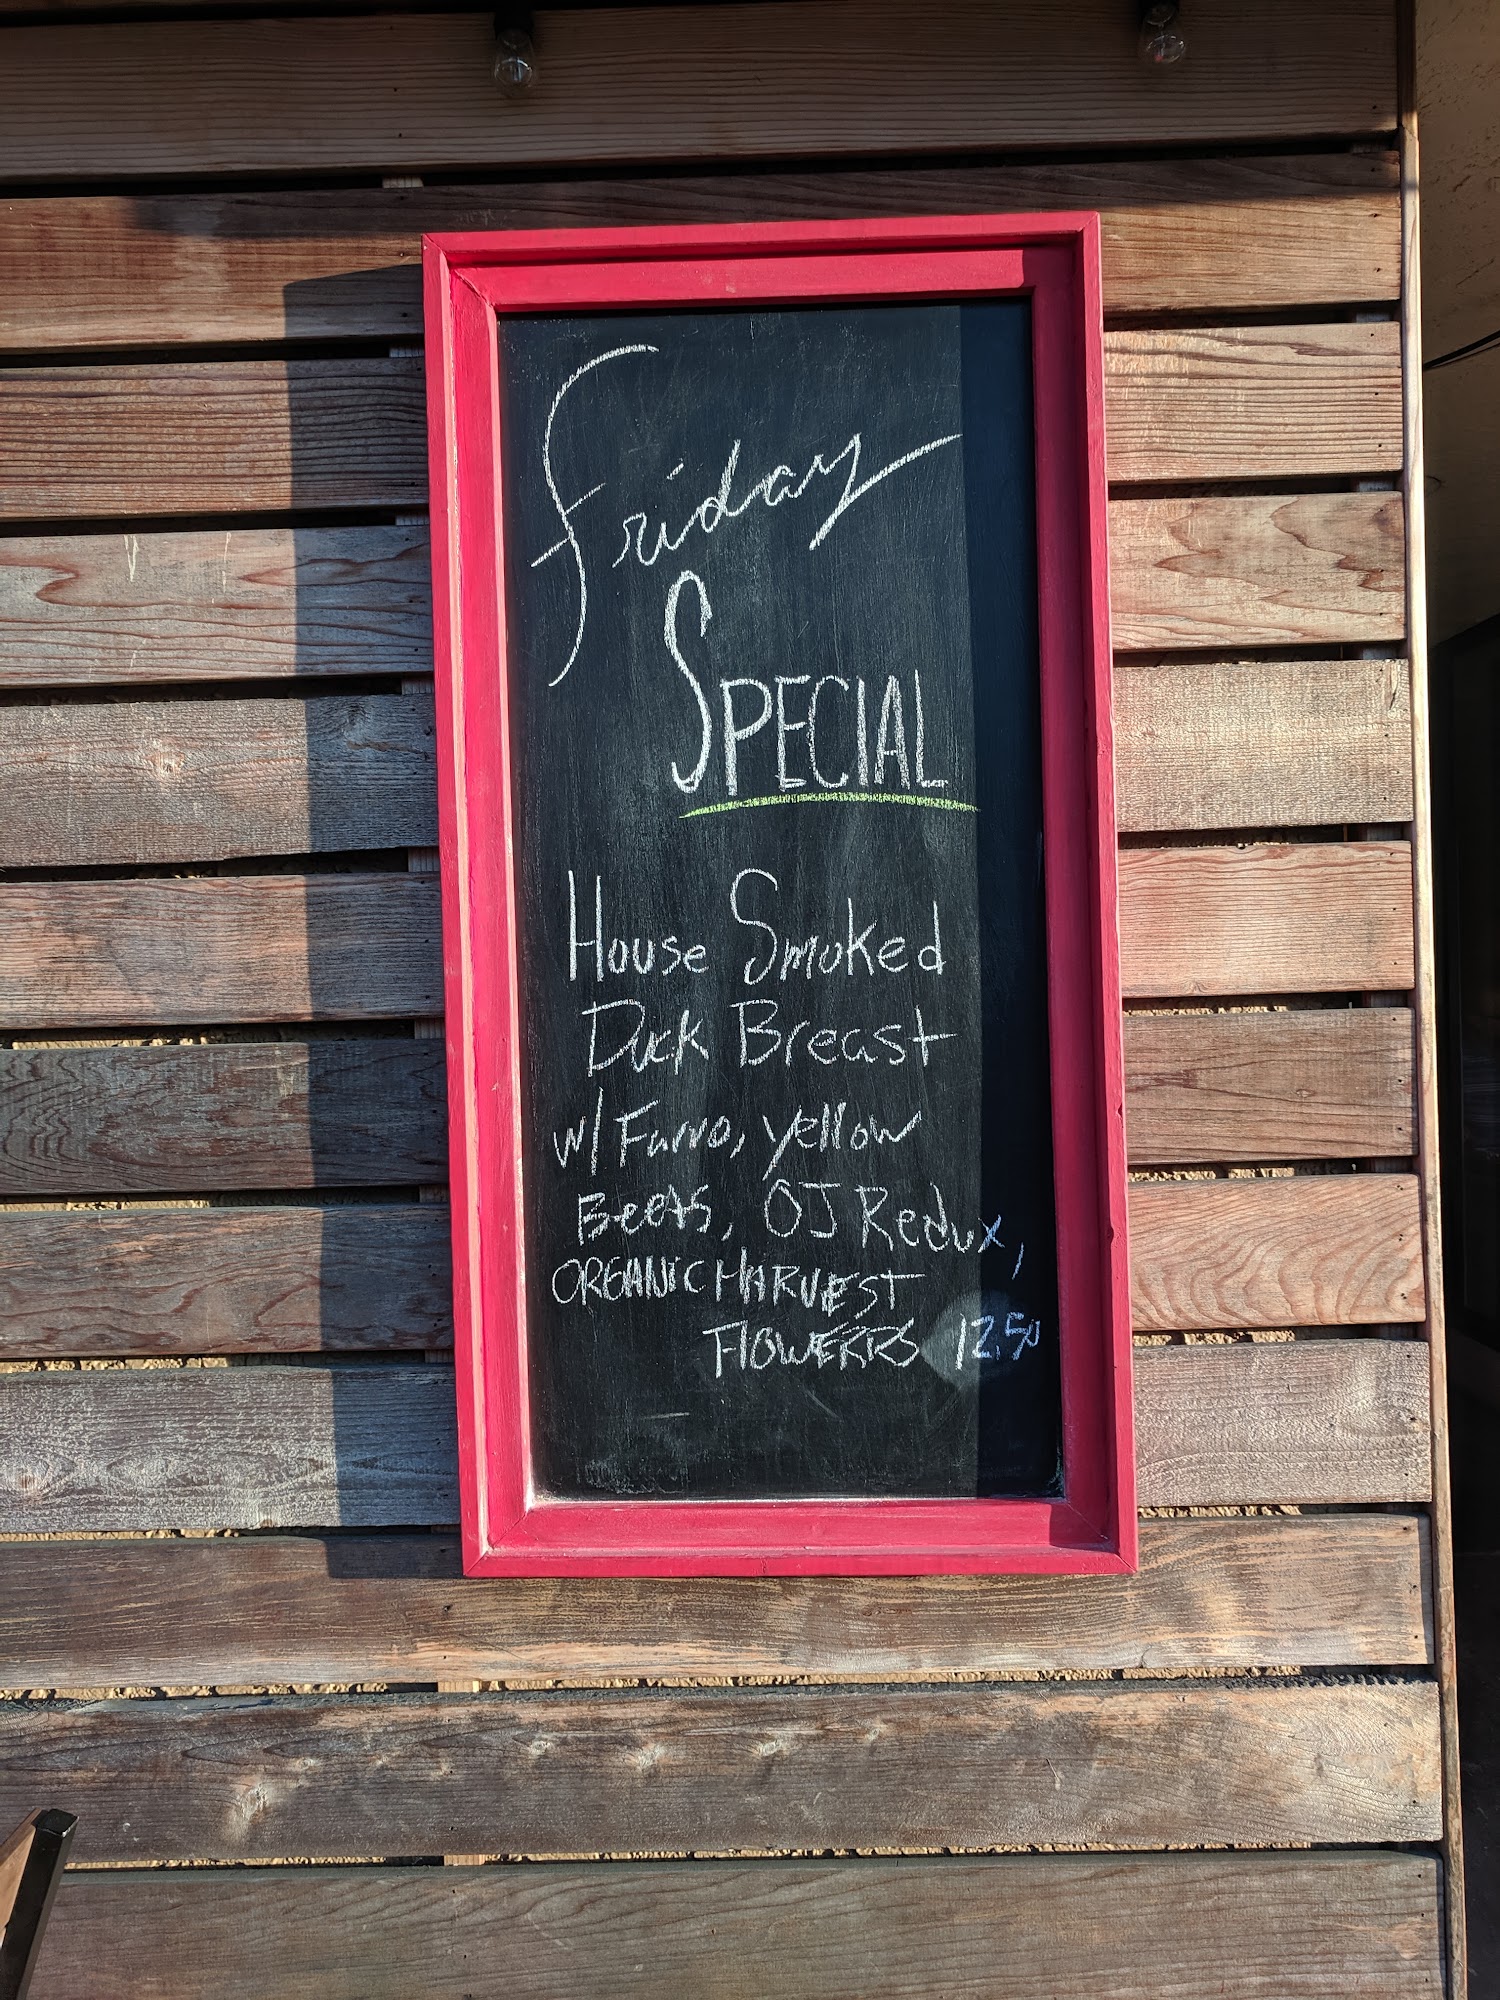 Friday
SPECIAL
House Smoked
Duck Breast
w/ Farro, yellow
Beets, OJ Redux,
ORGANIC HARVEST
FLOWERRS 12.50